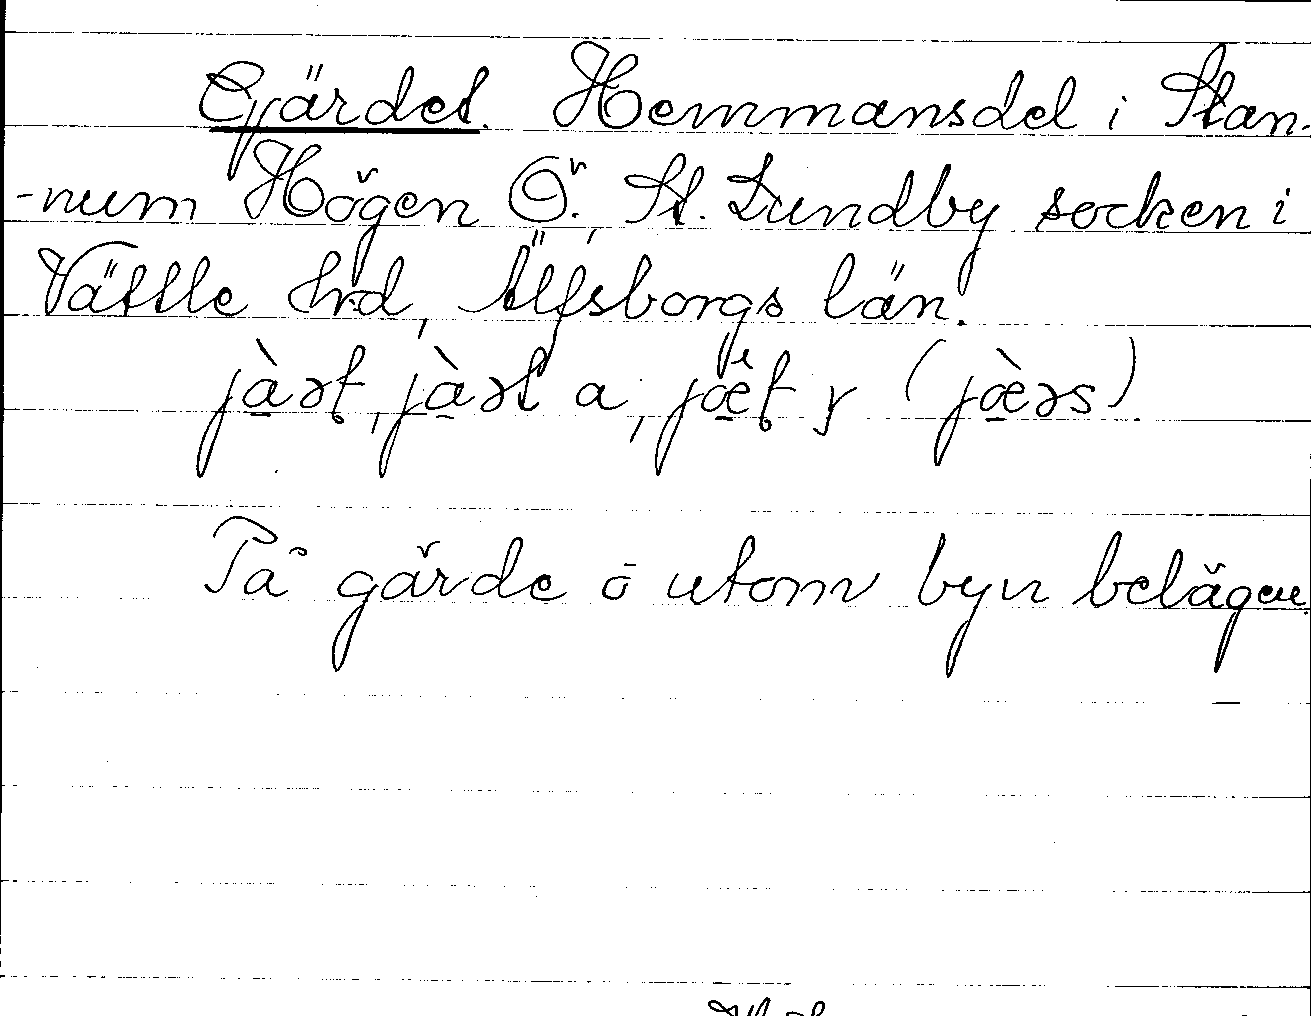 Gjärdet. Hemmansdel i Stan-
-num Högen Ö., St. Lundby socken i
Vättle hrd, Älfsborgs län.
jàrt, jàrt a,
På gärde o utom byn belägen